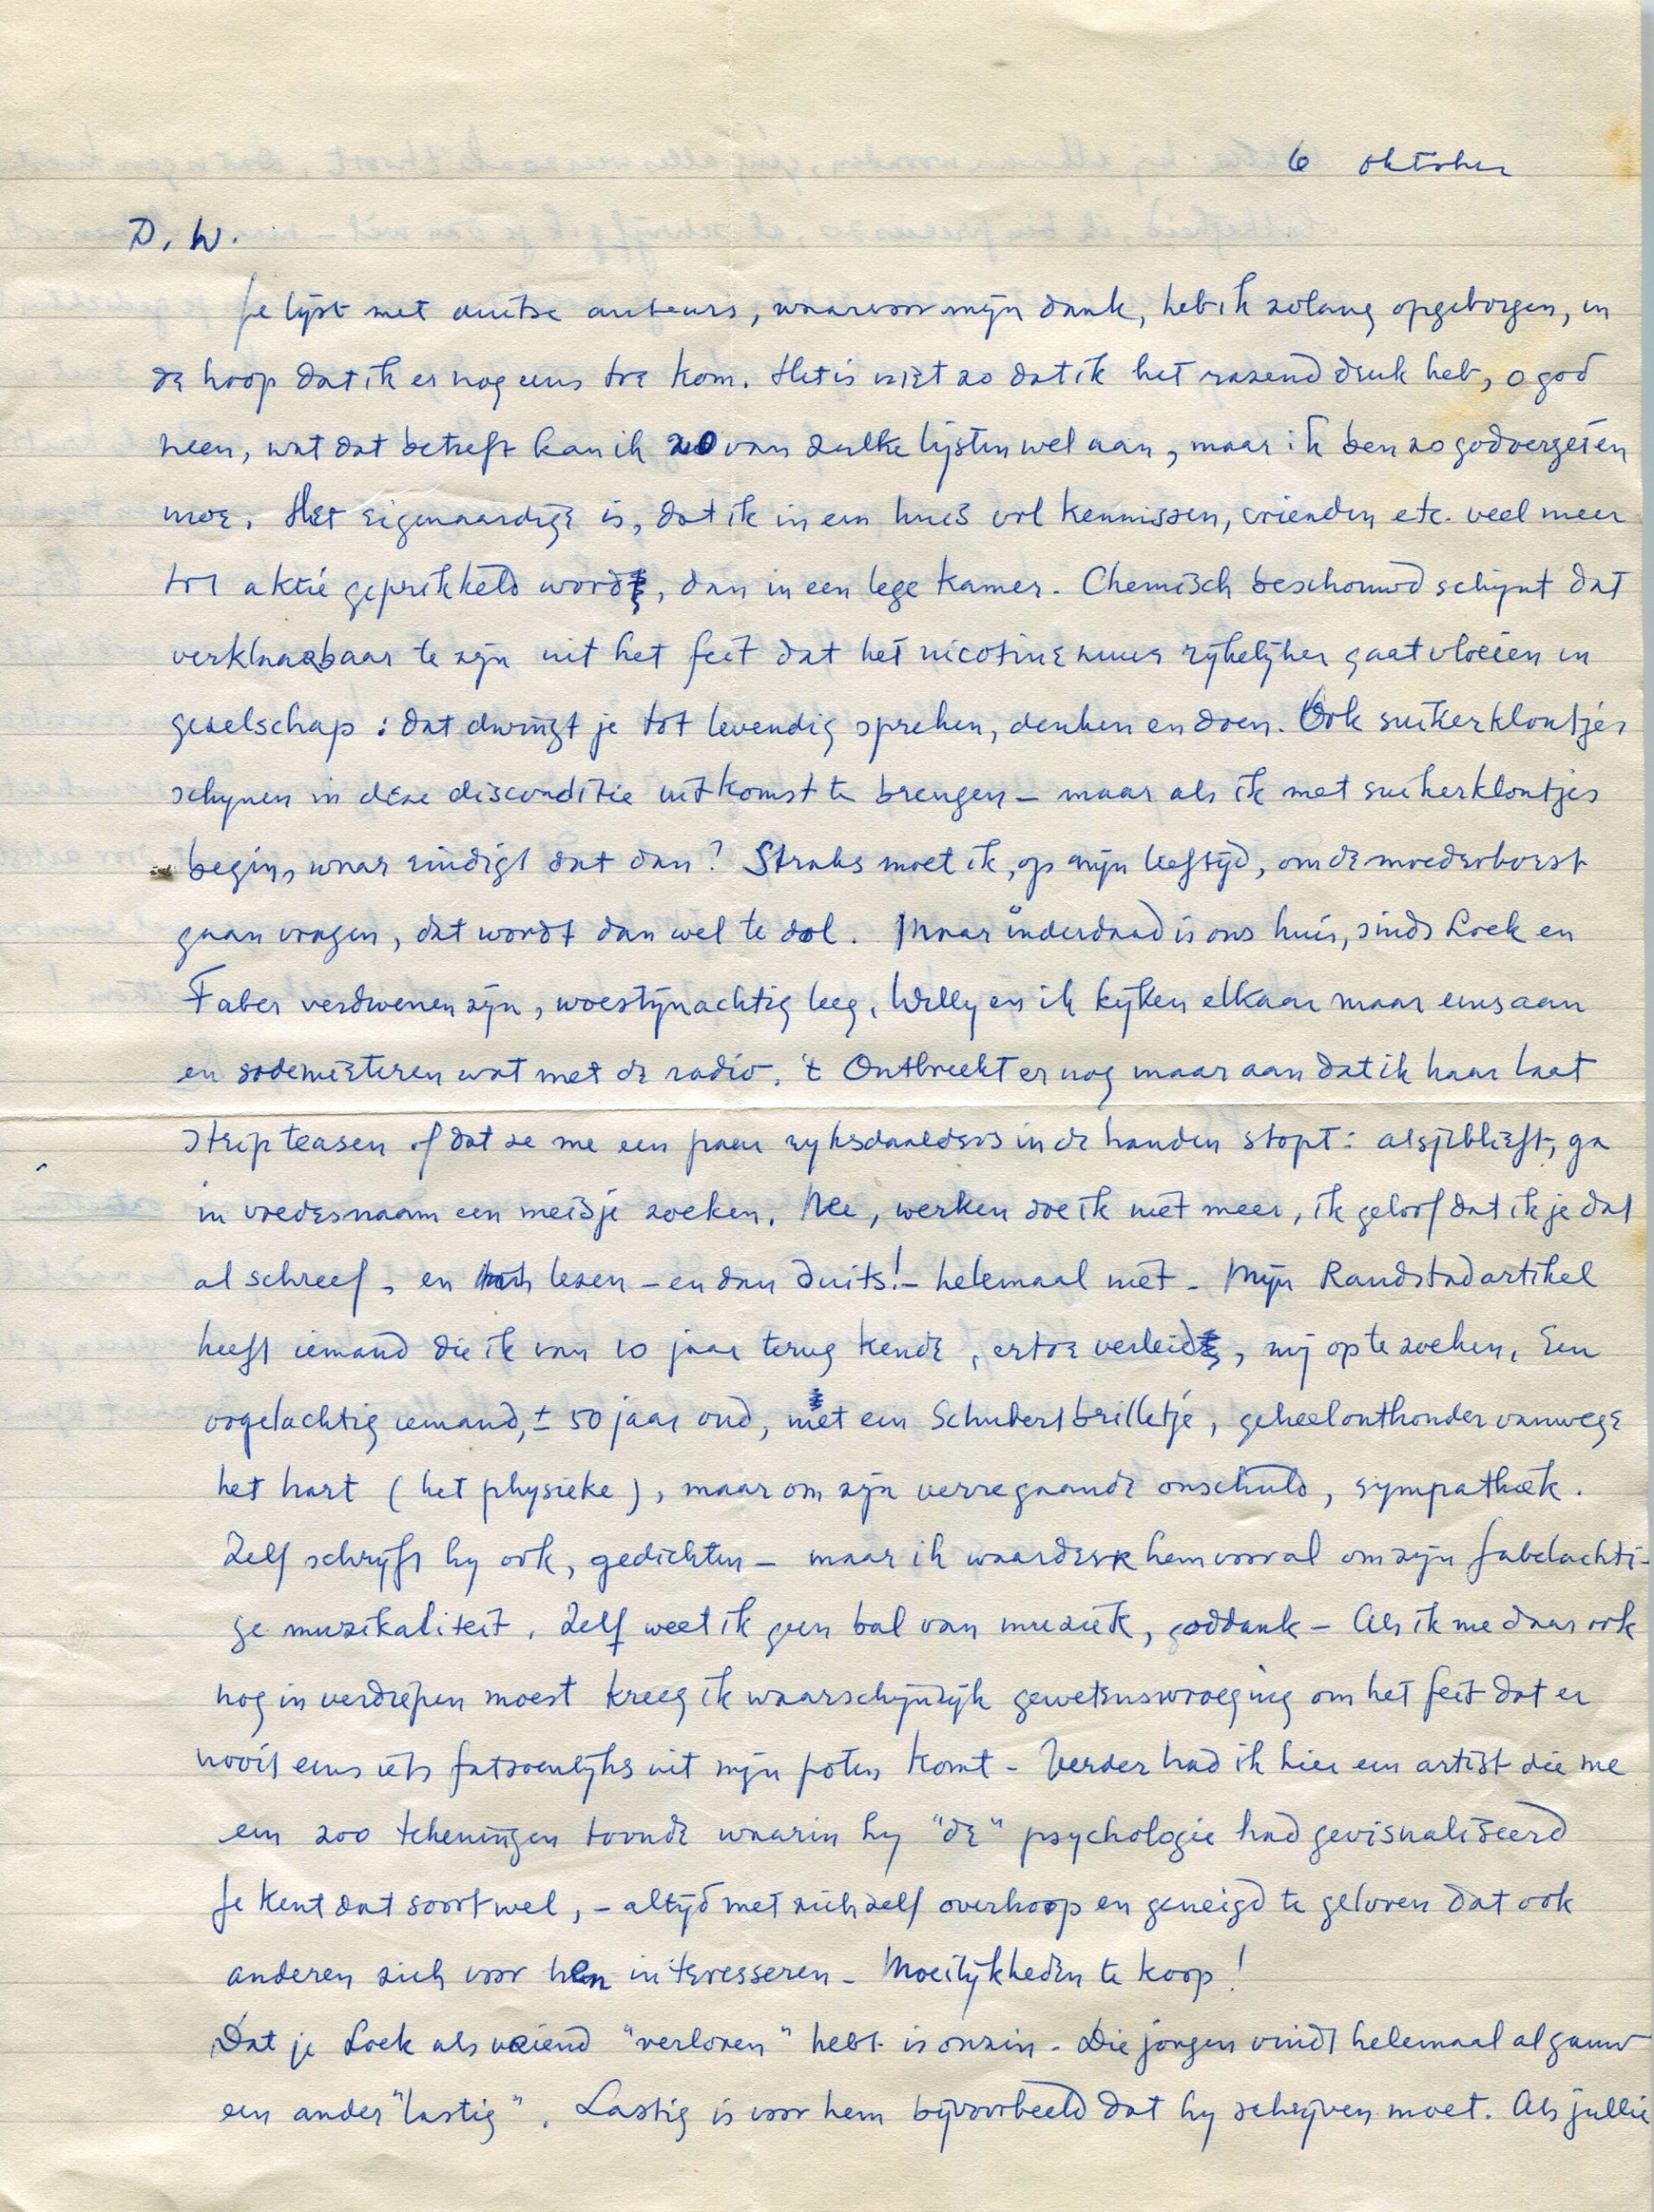 6 oktober
D. W.
Je lijst met duitse auteurs, waarvoor mijn dank, heb ik zolang opgeborgen, in
de hoop dat ik er nog eens toe kom. Het is niet zo dat ik het razend druk heb, o god
neen, wat dat betreft kan ik 20 van zulke lijsten wel aan, maar ik ben zo godvergeten
moe. Het eigenaardige is, dat ik in een huis vol kennissen, vrienden etc. veel meer
tot aktie geprikkeld word, dan in een lege kamer. Chemisch beschouwd schijnt dat
verklaarbaar te zijn uit het feit dat het nicotinezuur rijkelijker gaat vloeien in
gezelschap : dat dwingt je tot levendig spreken, denken en doen. Ook suikerklontjes
schijnen in deze disconditie uitkomst te brengen – maar als ik met suikerklontjes
begin, waar eindigt dat dan? Straks moet ik, op mijn leeftijd, om de moederborst
gaan vragen, dat wordt dan wel te dol. Maar inderdaad is ons huis, sinds Loek en
Faber verdwenen zijn, woestijnachtig leeg. Willy en ik kijken elkaar maar eens aan
en sodemieteren wat met de radio. 't Ontbreekt er nog maar aan dat ik haar laat
strip teasen of dat ze me een paar rijksdaalders in de handen stopt : alsjeblieft, ga
in vredesnaam een meisje zoeken. Nee, werken doe ik niet meer, ik geloof dat ik je dat
al schreef, en lezen – en dan duits! – helemaal niet – Mijn Randstadartikel
heeft iemand die ik van 10 jaar terug kende, ertoe verleid, mij op te zoeken. Een
vogelachtig iemand, ± 50 jaar oud, met een Schubertbrilletje, geheelonthouder vanwege
het hart (het physieke), maar om zijn verregaande onschuld, sympathiek.
Zelf schrijft hij ook, gedichten – maar ik waardeer hem vooral om zijn fabelachti-
ge muzikaliteit. Zelf weet ik geen bal van muziek, goddank – Als ik me daar ook
nog in verdiepen moest kreeg ik waarschijnlijk gewetenswroeging om het feit dat er
nooit eens iets fatsoenlijks uit mijn poten komt – Verder had ik hier een artist die me
een 200 tekeningen toonde waarin hij "de" psychologie had gevisualiseerd
Je kent dat soort wel, – altijd met zichzelf overhoop en geneigd te geloven dat ook
anderen zich voor hen interesseren – Moeilijkheden te koop!
Dat je Loek als vriend "verloren" hebt is onzin. Die jongen vindt helemaal al gauw
een ander "lastig". Lastig is voor hem bijvoorbeeld dat hij schrijven moet. Als jullie